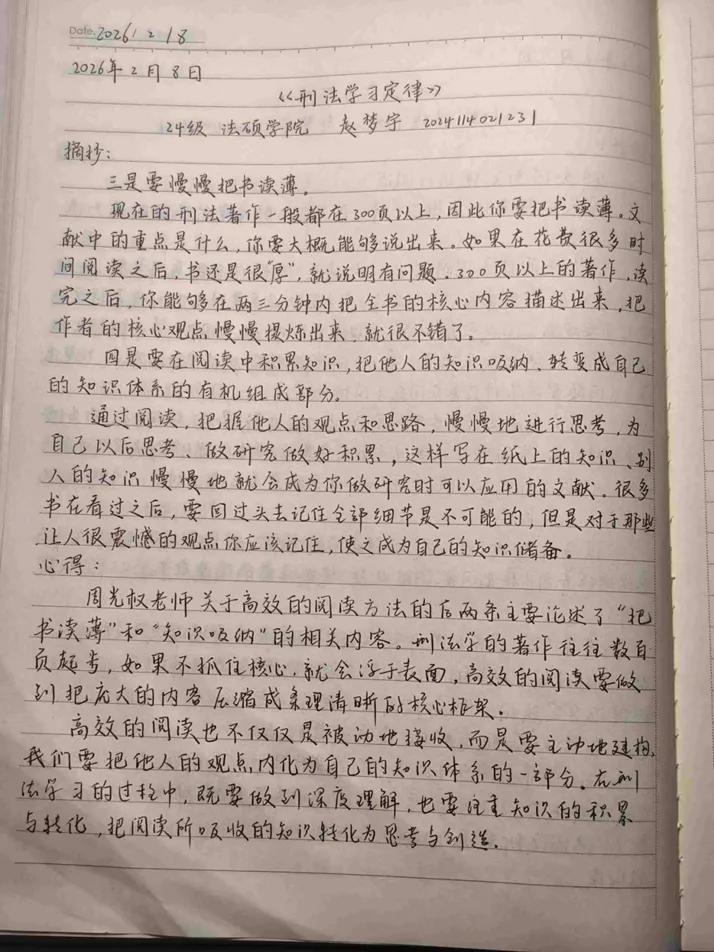 Date. 2026 / 2 / 8
2026年2月8日
《刑法学习定律》
24级 法硕学院 赵梦宇 2024114021231
摘抄：
三是要慢慢把书读薄。
现在的刑法著作一般都在300页以上，因此你要把书读薄。文
献中的重点是什么，你要大概能够说出来。如果在花费很多时
间阅读之后，书还是很“厚”，就说明有问题。300页以上的著作，读
完之后，你能够在两三分钟内把全书的核心内容描述出来，把
作者的核心观点慢慢提炼出来，就很不错了。
四是要在阅读中积累知识，把他人的知识吸纳、转变成自己
的知识体系的有机组成部分。
通过阅读，把握他人的观点和思路，慢慢地进行思考，为
自己以后思考、做研究做好积累，这样写在纸上的知识、别
人的知识慢慢地就会成为你做研究时可以应用的文献。很多
书在看过之后，要回过头去记住全部细节是不可能的，但是对于那些
让人很震撼的观点你应该记住，使之成为自己的知识储备。
心得：
周光权老师关于高效的阅读方法的后两条主要论述了“把
书读薄”和“知识吸纳”的相关内容。刑法学的著作往往数百
页起步，如果不抓住核心，就会浮于表面，高效的阅读要做
到把庞大的内容压缩成条理清晰的核心框架。
高效的阅读也不仅仅是被动地接收，而是要主动地建构，
我们要把他人的观点内化为自己的知识体系的一部分。在刑
法学习的过程中，既要做到深度理解，也要注重知识的积累
与转化，把阅读所吸收的知识转化为思考与创造。